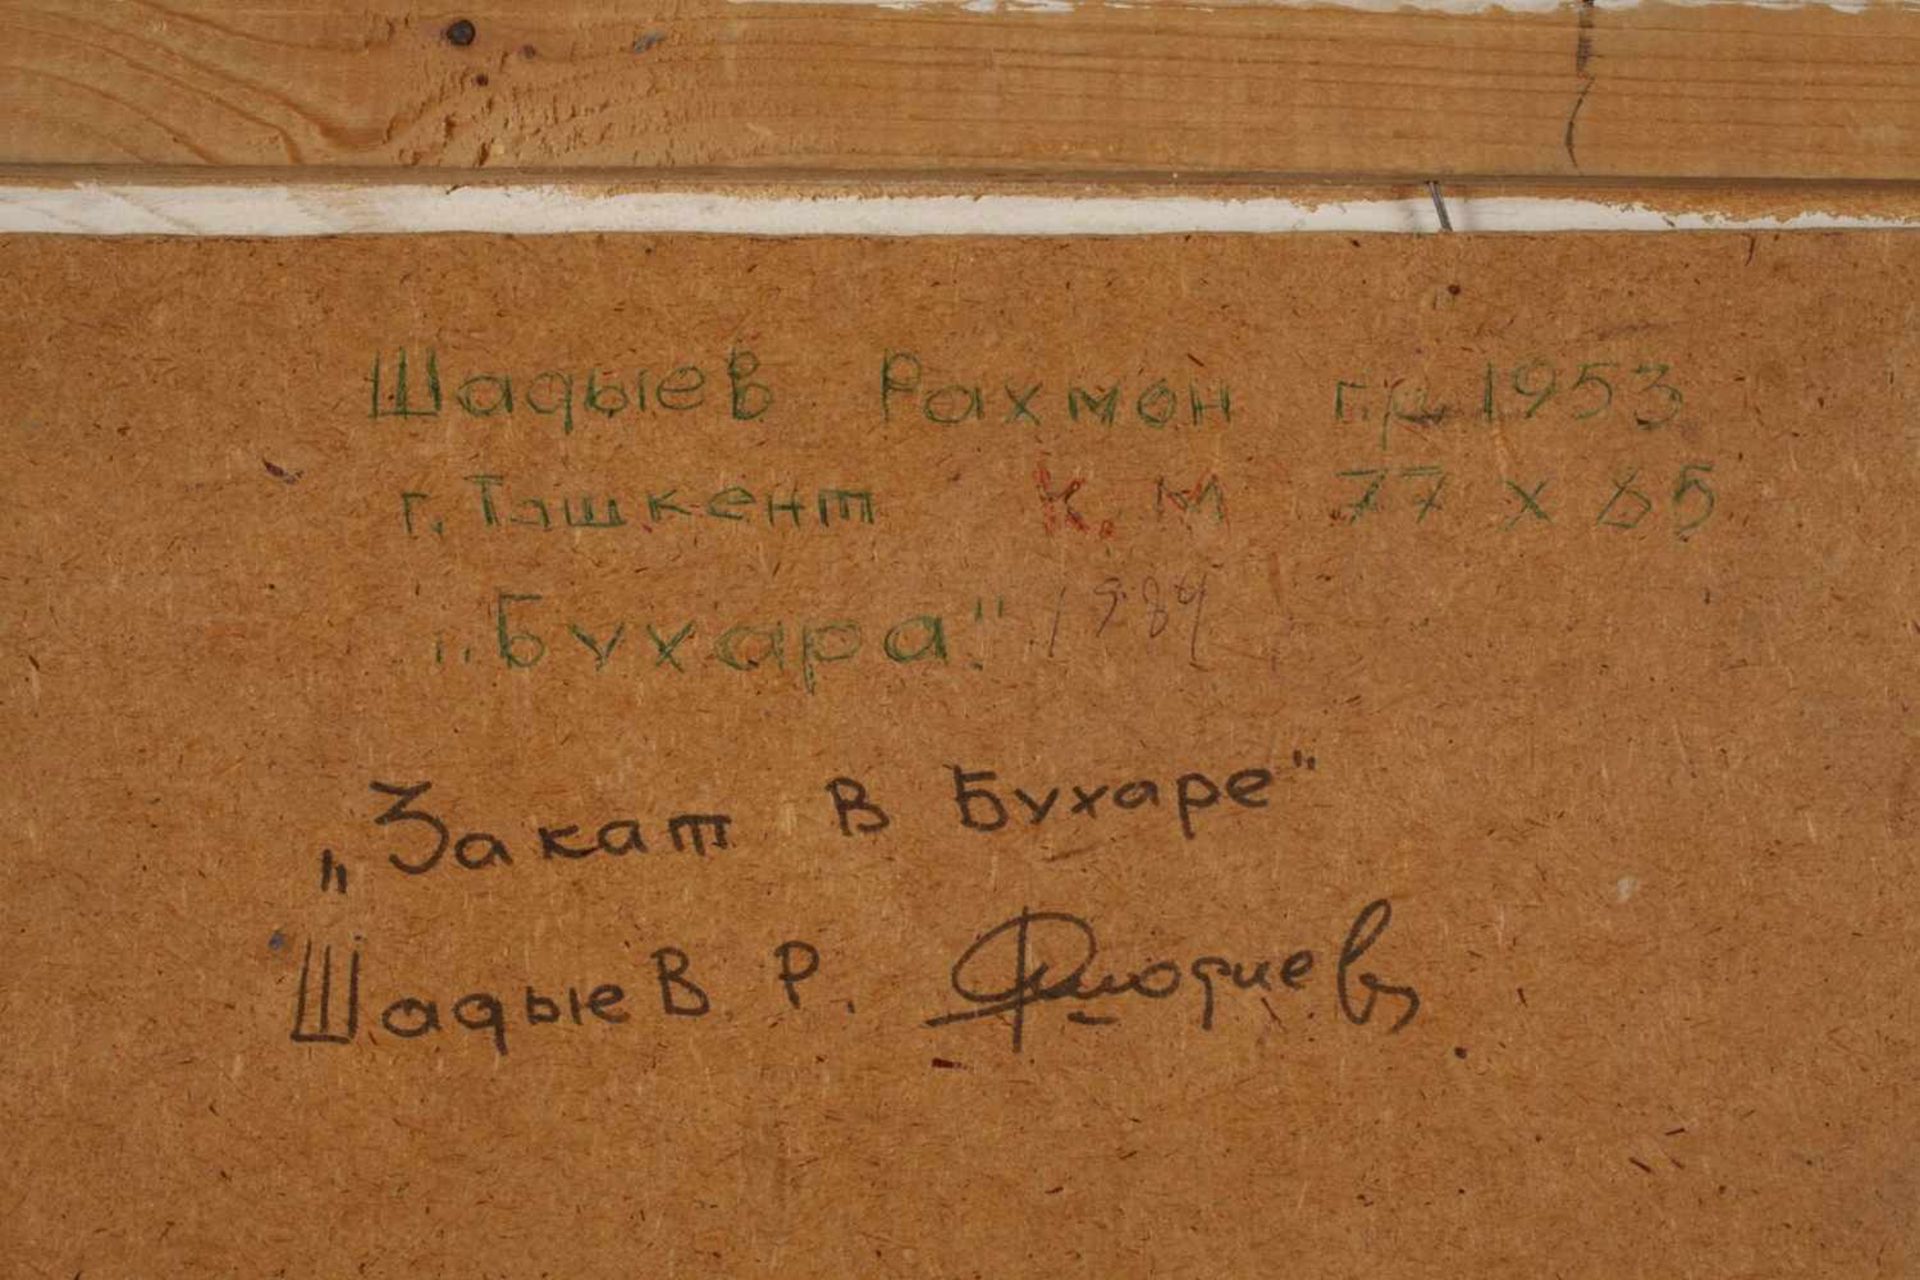 Шадыев Рахмон г.р 1953
г. Ташкент К. М 77 х 85
„Бухара." 1984
„Закат в Бухаре"
Шадыев Р.